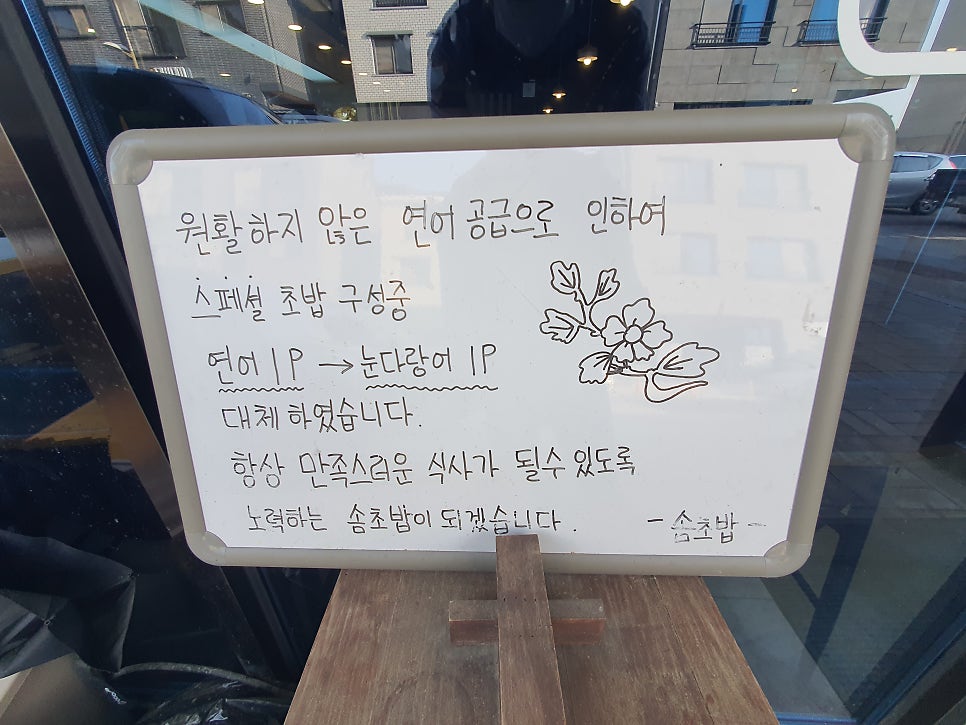 원활하지 않은 연어 공급으로 인하여
스페셜 초밥 구성중
연어 1P → 눈다랑어 1P
대체하였습니다.
항상 만족스러운 식사가 될수 있도록
노력하는 솜초밥이 되겠습니다.
- 솜초밥 -